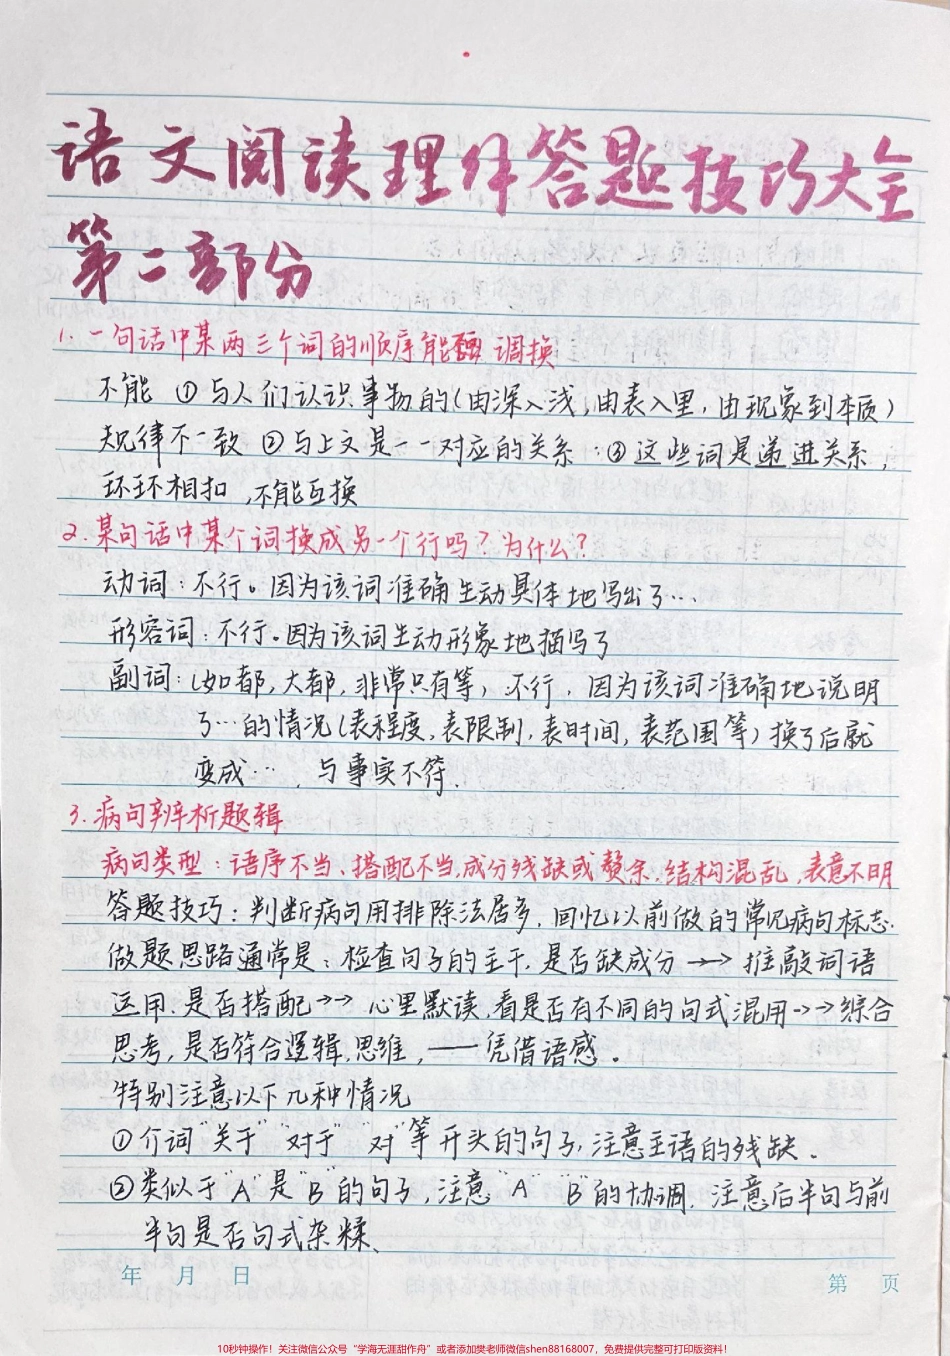 语文阅读理解答题技巧大全
第二部分
1. 一句话中某两三个词的顺序能 调换
不能 ①与人们认识事物的(由深入浅,由表入里,由现象到本质)
规律不一致 ②与上文是一一对应的关系 ③这些词是递进关系,
环环相扣,不能互换
2. 某句话中某个词换成另一个行吗?为什么?
动词:不行。因为该词准确生动具体地写出了…
形容词:不行。因为该词生动形象地描写了
副词:(如都,大都,非常只有等)不行,因为该词准确地说明
了…的情况(表程度,表限制,表时间,表范围等)换了后就
变成… ,与事实不符.
3. 病句辨析题辑
病句类型:语序不当、搭配不当,成分残缺或赘余.结构混乱,表意不明
答题技巧:判断病句用排除法居多,回忆以前做的常见病句标志.
做题思路通常是:检查句子的主干,是否缺成分→→推敲词语
运用.是否搭配→→心里默读,看是否有不同的句式混用→→综合
思考,是否符合逻辑,思维,——凭借语感.
特别注意以下几种情况
①介词"关于""对于""对"等开头的句子,注意主语的残缺.
②类似于"A"是"B"的句子,注意"A""B"的协调,注意后半句与前
半句是否句式杂糅、
年 月 日
第 页
10秒钟操作!关注微信公众号“学海无涯甜作舟”或者添加樊老师微信shen88168007,免费提供完整可打印版资料!